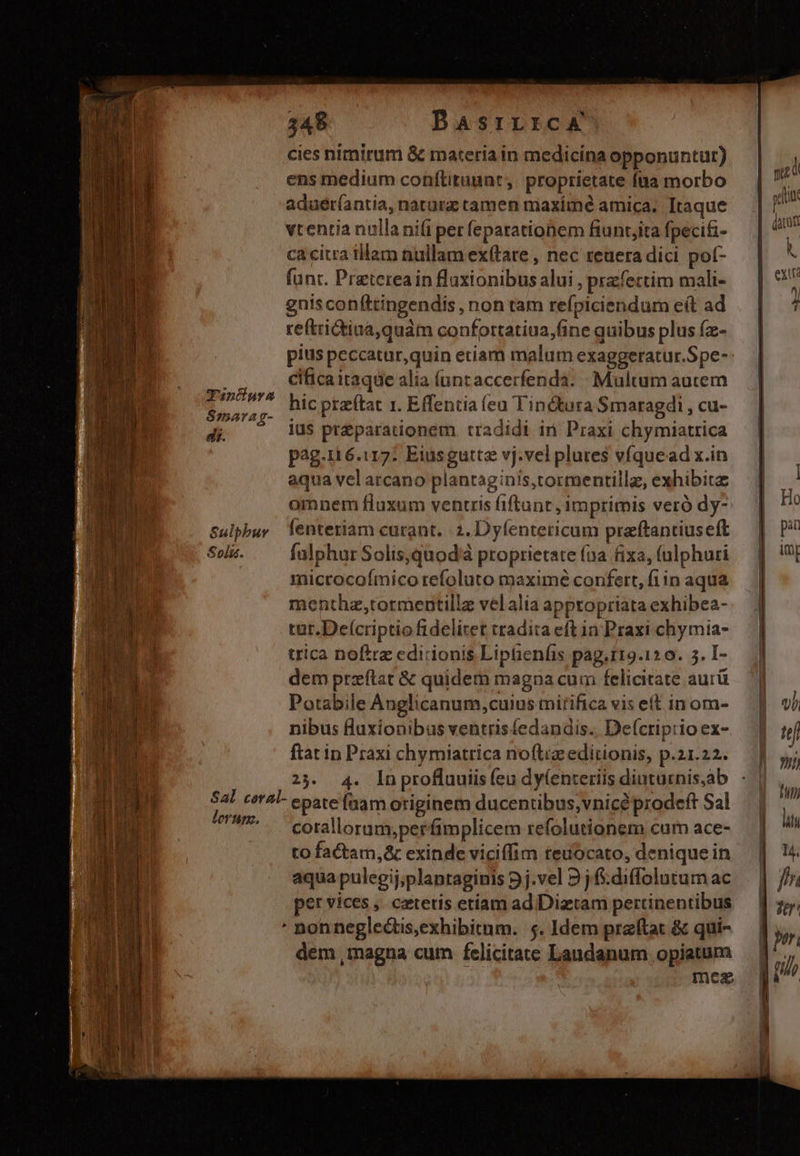 348 BASILICA
cies nimirum & materia in medicina opponuntur)
ens medium conſtituunt, proprietate ſua morbo
aduerſantia, naturæ tamen maximè amica. Itaque
vtentia nulla niſi per ſeparationem fiunt, ita ſpecifi-
ca citra illam nullam exſtare, nec reuera dici poſ-
ſunt. Præterea in fluxionibus alui, præſertim mali-
gnis conſtringendis, non tam reſpiciendum eſt ad
reſtrictiua, quàm confortatiua, ſine quibus plus ſæ-
pius peccatur, quin etiam malum exaggeratur. Spe-
cifica itaque alia ſunt accerſenda. Multum autem
Tinctura
Smarag-
di.
hic præſtat 1. Eſſentia ſeu Tinctura Smaragdi, cu-
ius præparationem tradidi in Praxi chymiatrica
pag. 116. 117. Eius guttæ vj. vel plures vſque ad x. in
aqua vel arcano plantaginis, tormentillæ, exhibitæ
omnem fluxum ventris ſiſtunt, imprimis verò dy-
Sulphur
Solis.
ſenteriam curant. 2. Dyſentericum præſtantius eſt
ſulphur Solis, quod à proprietate ſua fixa, ſulphuri
microcoſmico reſoluto maximè confert, ſi in aqua
menthæ, tormentillæ vel alia appropriata exhibea-
tur. Deſcriptio fideliter tradita eſt in Praxi chymia-
trica noſtræ editionis Lipſienſis pag. 119. 120. 3. I-
dem præſtat & quidem magna cum felicitate aurũ
Potabile Anglicanum, cuius mirifica vis eſt in om-
nibus fluxionibus ventris ſedandis. Deſcriptio ex-
ſtat in Praxi chymiatrica noſtræ editionis, p. 21. 22.
23. 4. In profluuiis ſeu dyſenteriis diuturnis, ab
Sal coral-
lorum.
epate ſuam originem ducentibus, vnicè prodeſt Sal
corallorum, per ſimplicem reſolutionem cum ace-
to factam, & exinde viciſſim reuocato, denique in
aqua pulegij, plantaginis ℈ j. vel ℈ j ß. diſſolutum ac
per vices, cæteris etiam ad Diætam pertinentibus
non neglectis, exhibitum. 5. Idem præſtat & qui-
dem, magna cum felicitate Laudanum opiatum
meæ